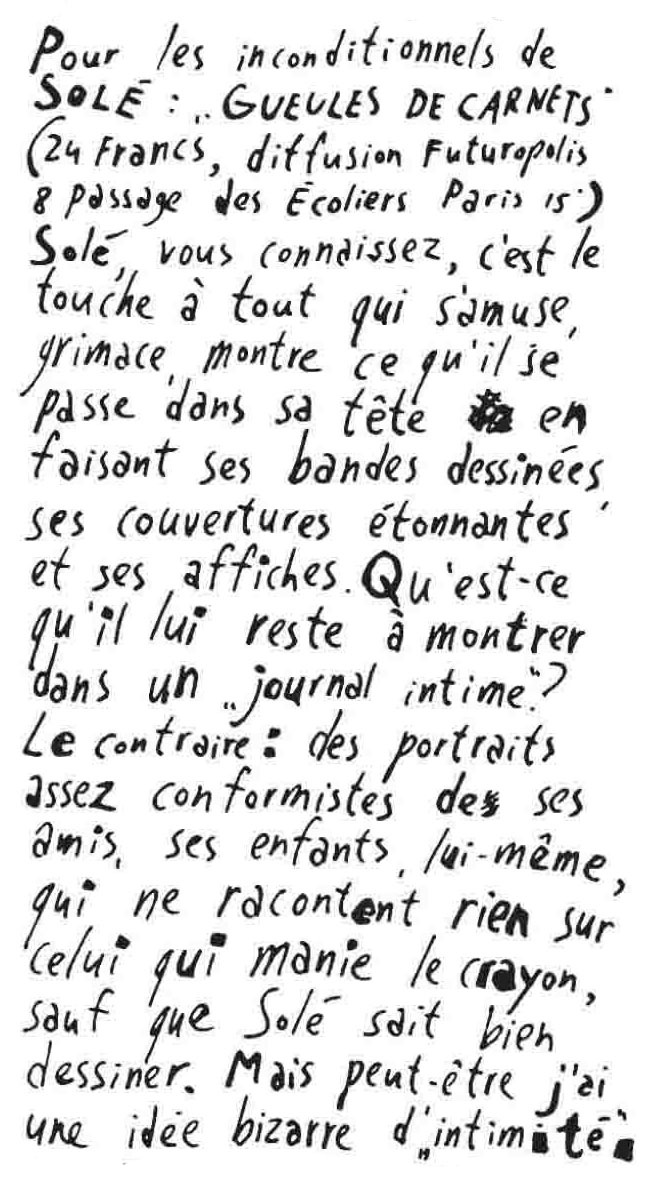 Pour les inconditionnels de
SOLÉ : „GUEULES DE CARNETS"
(24 Francs, diffusion Futuropolis
8 passage des Écoliers Paris 15.)
Solé, vous connaissez, c'est le
touche à tout qui s'amuse,
grimace, montre ce qu'il se
passe dans sa tête en
faisant ses bandes dessinées,
ses couvertures étonnantes
et ses affiches. Qu'est-ce
qu'il lui reste à montrer
dans un „journal intime"?
Le contraire: des portraits
assez conformistes des ses
amis, ses enfants, lui-même,
qui ne racontent rien sur
celui qui manie le crayon,
sauf que Solé sait bien
dessiner. Mais peut-être j'ai
une idée bizarre d'„intimité".